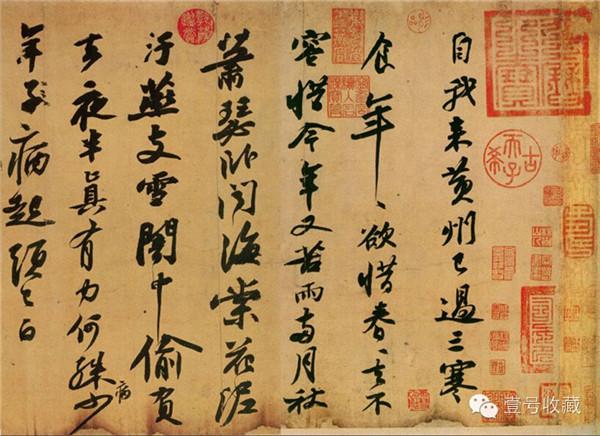 自我来黄州已過三寒
食年〻欲惜春〻去不
容惜今年又苦雨兩月秋
蕭瑟卧聞海棠花泥
汙燕支雪闇中偷負
去夜半真有力何殊病少
年子病起須已白
古希天子
壹号收藏